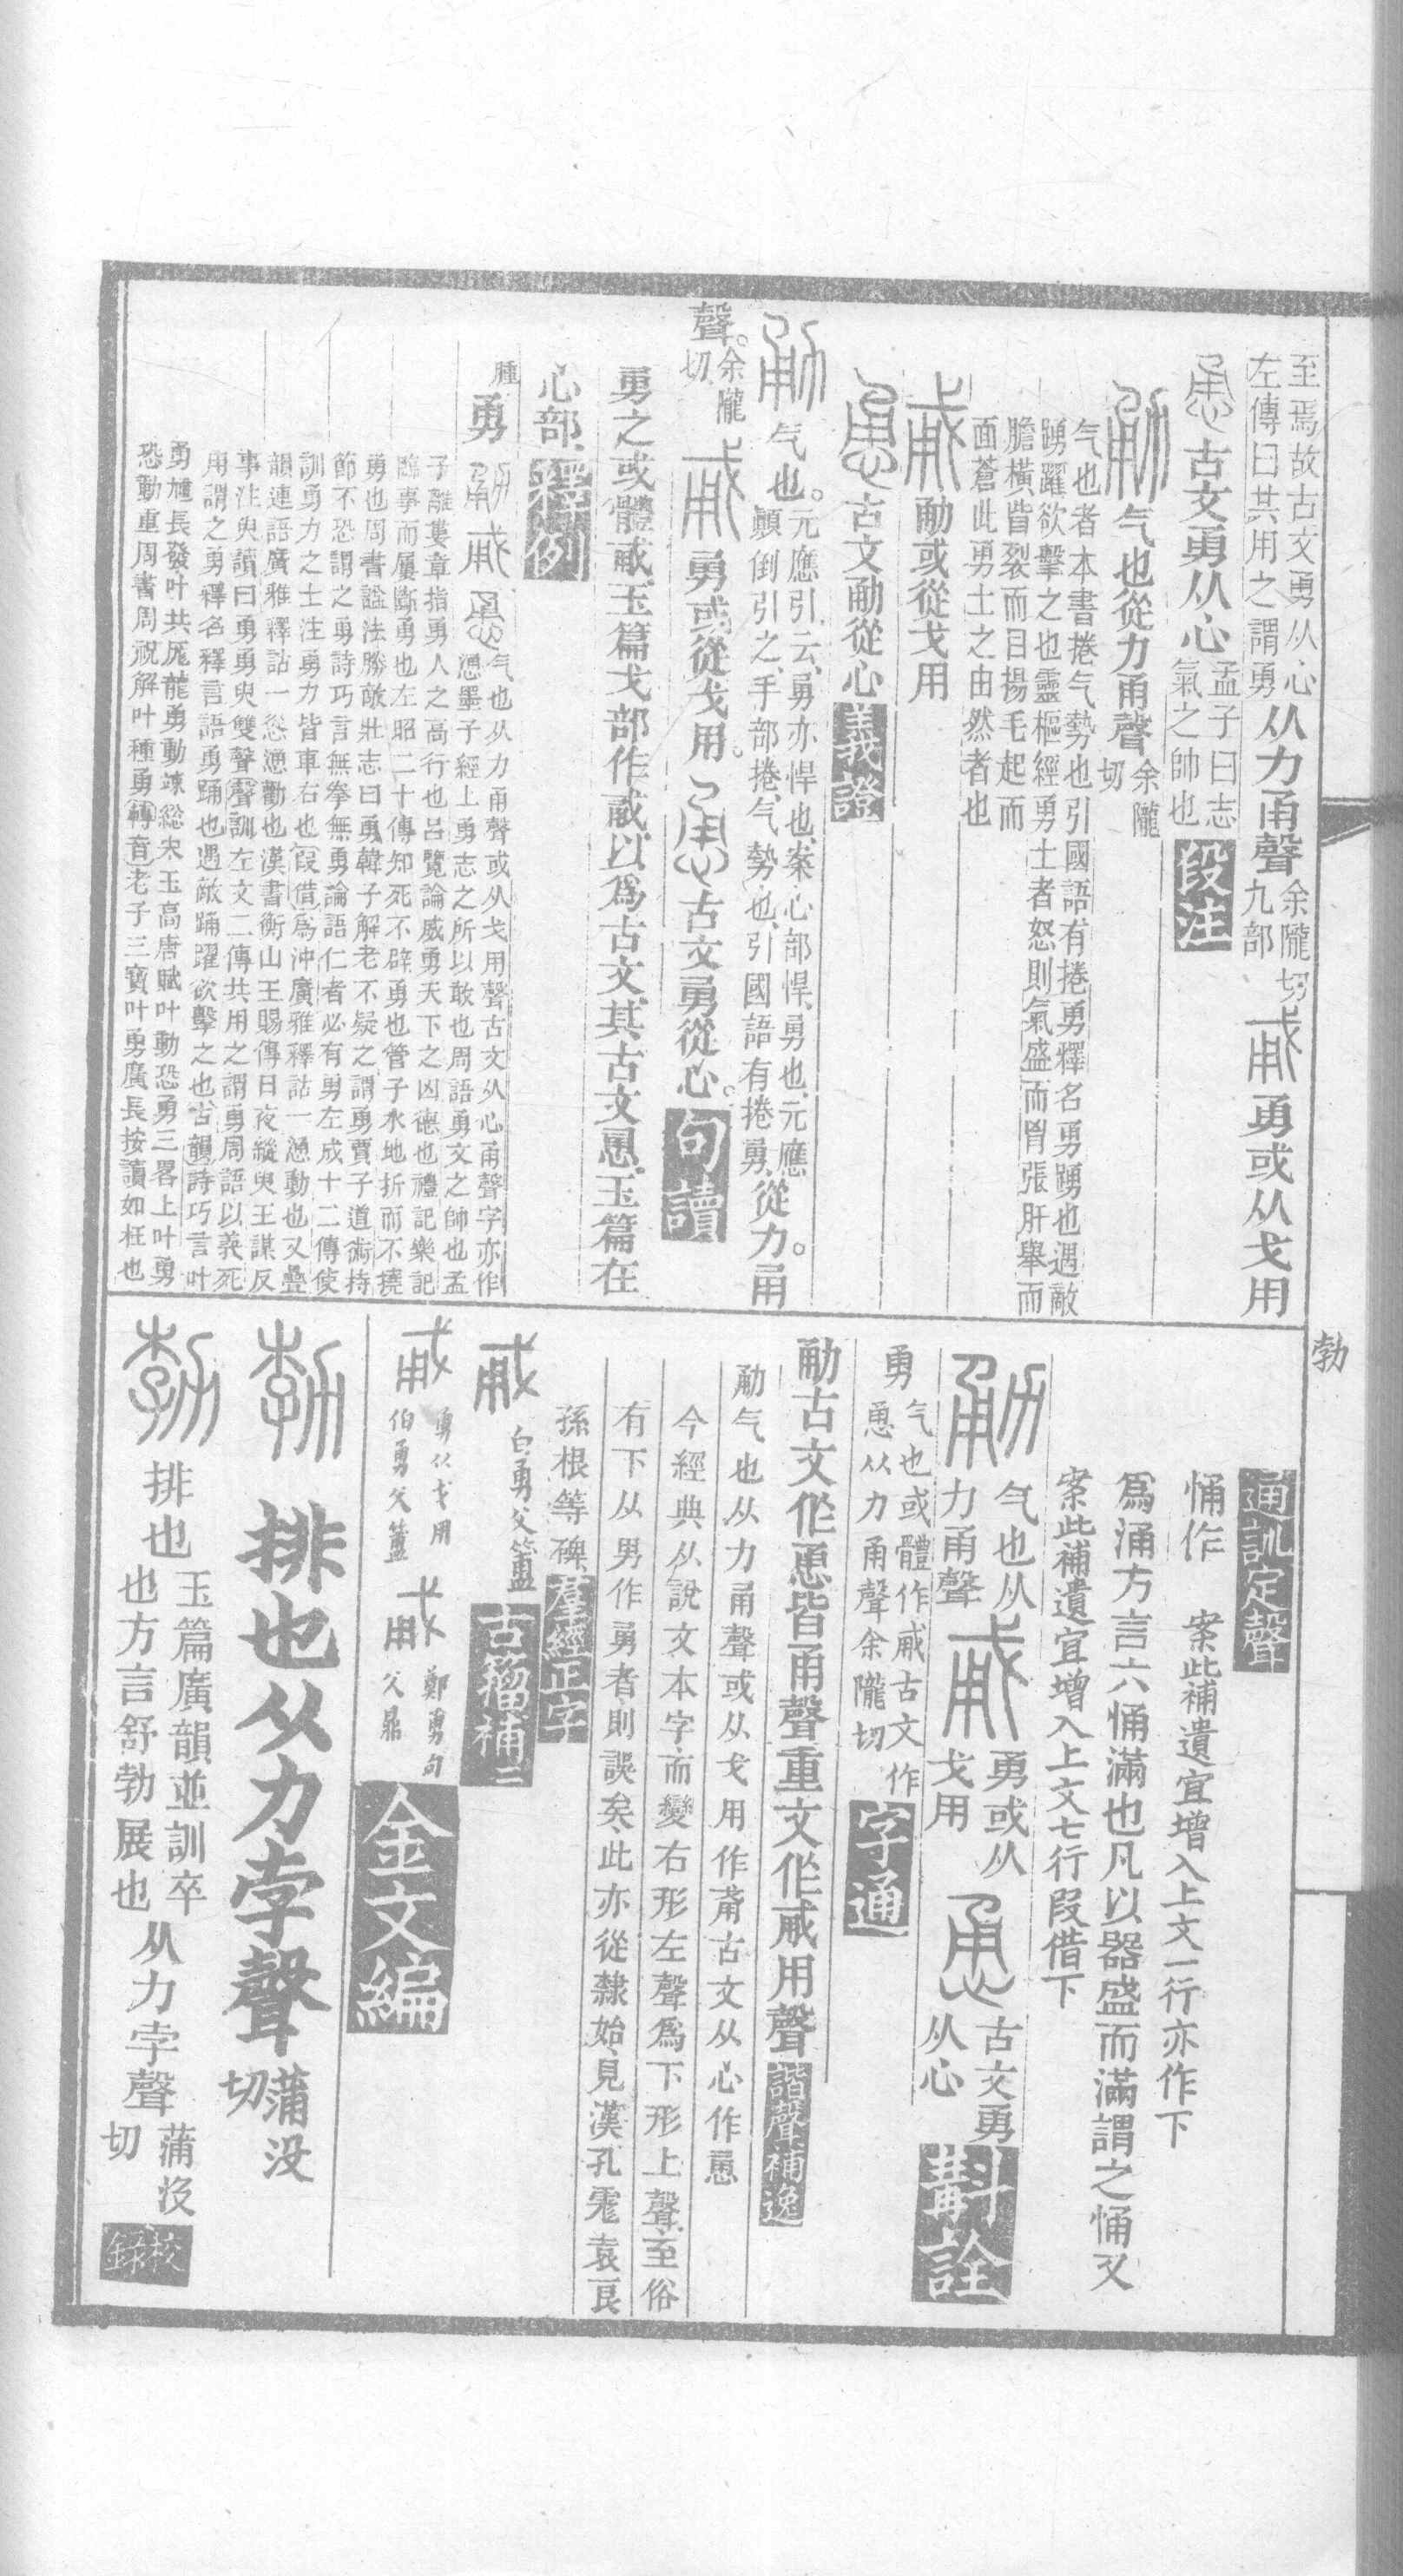 至焉故古文勇从心
左傳曰共用之謂勇
从力甬聲
余隴切
九部
勇或从戈用
古文勇从心
孟子曰志
氣之帥也
段注
气也從力甬聲
余隴
切
气也者本書捲气勢也引國語有捲勇釋名勇踊也遇敵
踴躍欲擊之也靈樞經勇士者怒則氣盛而胷張肝舉而
膽橫眥裂而目揚毛起而
面蒼此勇士之由然者也
勈或從戈用
古文勈從心
義證
气也。
元應引云、勇亦悍也、案心部悍、勇也、元應
顛倒引之、手部捲、气勢也、引國語有捲勇、
從力。甬
聲。
余隴
切、
勇或從戈用。
古文勇從心。
句讀
勇之或體㦷、玉篇戈部作㦷、以爲古文、其古文恿、玉篇在
心部、
釋例
勇
气也从力甬聲或从戈用聲古文从心甬聲字亦作
慂墨子經上勇志之所以敢也周語勇文之帥也孟
子離婁章指勇人之高行也呂覽論威勇天下之凶德也禮記樂記
臨事而屢斷勇也左昭二十傳知死不辟勇也管子水地折而不撓
勇也周書諡法勝敵壯志曰勇韓子解老不疑之謂勇賈子道術持
節不恐謂之勇詩巧言無拳無勇論語仁者必有勇左成十二傳使
訓勇力之士注勇力皆車右也叚借爲沖廣雅釋詁一慂動也又疊
韻連語廣雅釋詁一慫慂勸也漢書衡山王賜傳日夜縱臾王謀反
事注臾讀曰勇勇臾雙聲聲訓左文二傳共用之謂勇周語以義死
用謂之勇釋名釋言語勇踊也遇敵踊躍欲擊之也古韻詩巧言叶
勇尰長發叶共厖龍勇動竦總宋玉高唐賦叶動恐勇三畧上叶勇
恐動重周書周祝解叶種勇轉音老子三寶叶勇廣長按讀如枉也
勃
通訓定聲
悀作
案此補遺宜增入上文一行亦作下
爲涌方言六悀滿也凡以器盛而滿謂之悀又
案此補遺宜增入上文七行叚借下
气也从
力甬聲
勇或从
戈用
古文勇
从心
斠詮
勇
气也或體作㦷古文作
恿从力甬聲余隴切
字通
勈古文作恿皆甬聲重文作㦷用聲
諧聲補逸
勈气也从力甬聲或从戈用作㦷古文从心作恿
今經典从說文本字、而變右形左聲爲下形上聲、至俗
有下从男作勇者、則誤矣、此亦從隸始、見漢孔宙袁良
孫根等碑、
羣經正字
白勇父簠
古籀補二
勇从戈用
伯勇父簠
鄭勇句
父鼎
金文編
排也从力孛聲
蒲没
切
排也
玉篇廣韻並訓卒
也方言舒勃展也
从力孛聲
蒲没
切
校錄